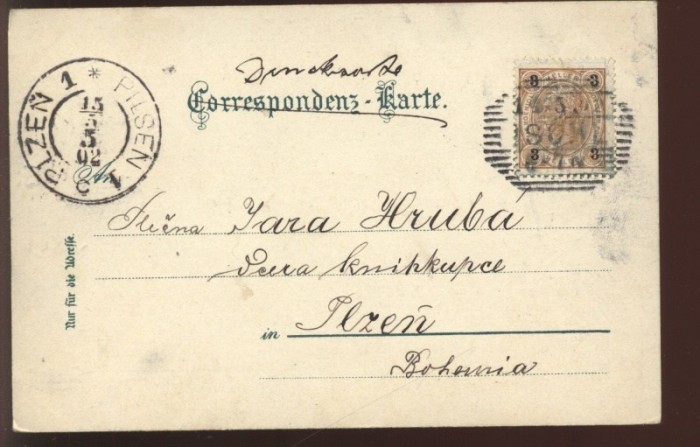 Drucksorte
Correspondenz-Karte.
PLZEŇ 1 * PILSEN 1
15
5
02
An
3 3
3 3
Slečna Jara Hrubá
dcera knihkupce
in Plzeň
Bohemia
Nur für die Adresse.